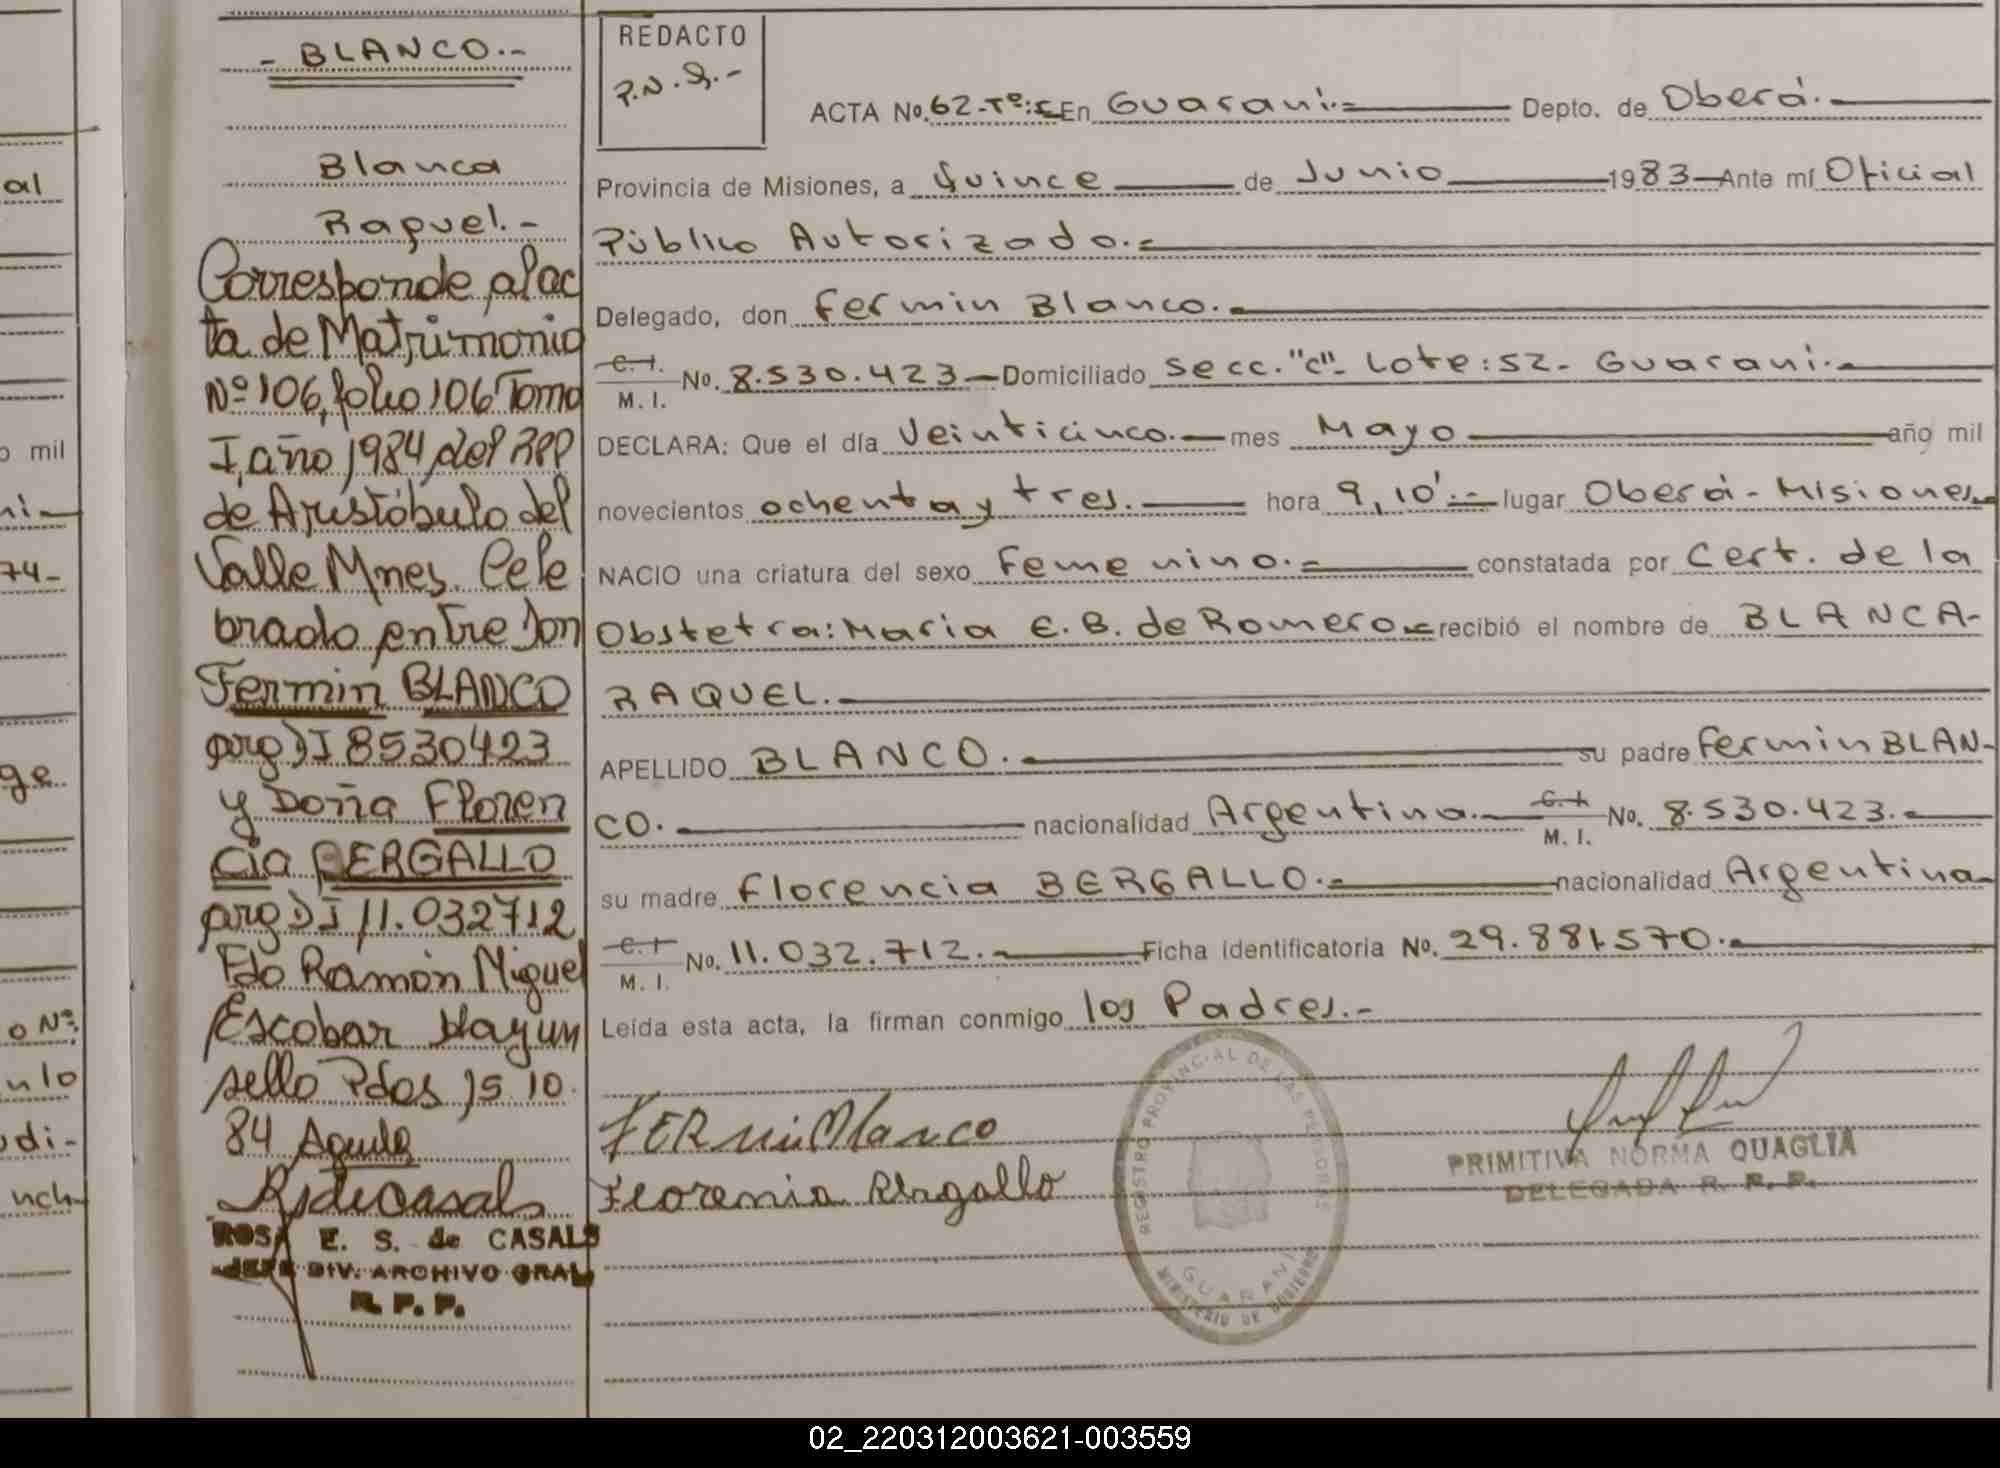 - BLANCO.-
Blanca
Raquel.-
Corresponde al ac
ta de Matrimonio
Nº 106, folio 106 Tomo
I, año 1984 del RPP
de Aristóbulo del
Valle Mnes. Cele
brado entre Don
Fermin BLANCO
arg DI 8530423
y Doña Floren
cia BERGALLO
arg DI 11.032712
Fdo Ramón Miguel
Escobar Hay un
sello Pdas 15.10.
84
ROSA E. S. de CASALS
JEFE DIV. ARCHIVO GRAL
R. P. P.
REDACTO
P.N.Q.-
ACTA No. 62-Tº: En Guarani.- Depto. de Oberá.-
Provincia de Misiones, a Quince de Junio 1983 Ante mí Oficial
Público Autorizado.-
Delegado, don Fermin Blanco.-
C. I.
M. I.
No. 8.530.423 Domiciliado Secc. "C"- Lote: 52- Guarani.-
DECLARA: Que el día Veinticinco.- mes Mayo año mil
novecientos ochenta y tres.- hora 9,10'.- lugar Oberá - Misiones
NACIO una criatura del sexo Femenino.- constatada por Cert. de la
Obstetra: Maria E. B. de Romero recibió el nombre de BLANCA-
RAQUEL.-
APELLIDO BLANCO.- su padre Fermin BLAN-
CO.- nacionalidad Argentina.- C. I.
M. I.
No. 8.530.423.-
su madre Florencia BERGALLO.- nacionalidad Argentina
C. I.
M. I.
No. 11.032.712.- Ficha identificatoria No. 29.881.570.-
Leída esta acta, la firman conmigo los Padres.-
FERmin Blanco
REGISTRO PROVINCIAL DE LAS PERSONAS
GUARANI
MINISTERIO DE GOBIERNO
PRIMITIVA NORMA QUAGLIA
DELEGADA R. P. P.
al
o mil
ni-
74-
ge
o Nº
ulo
udi-
nch
02_220312003621-003559